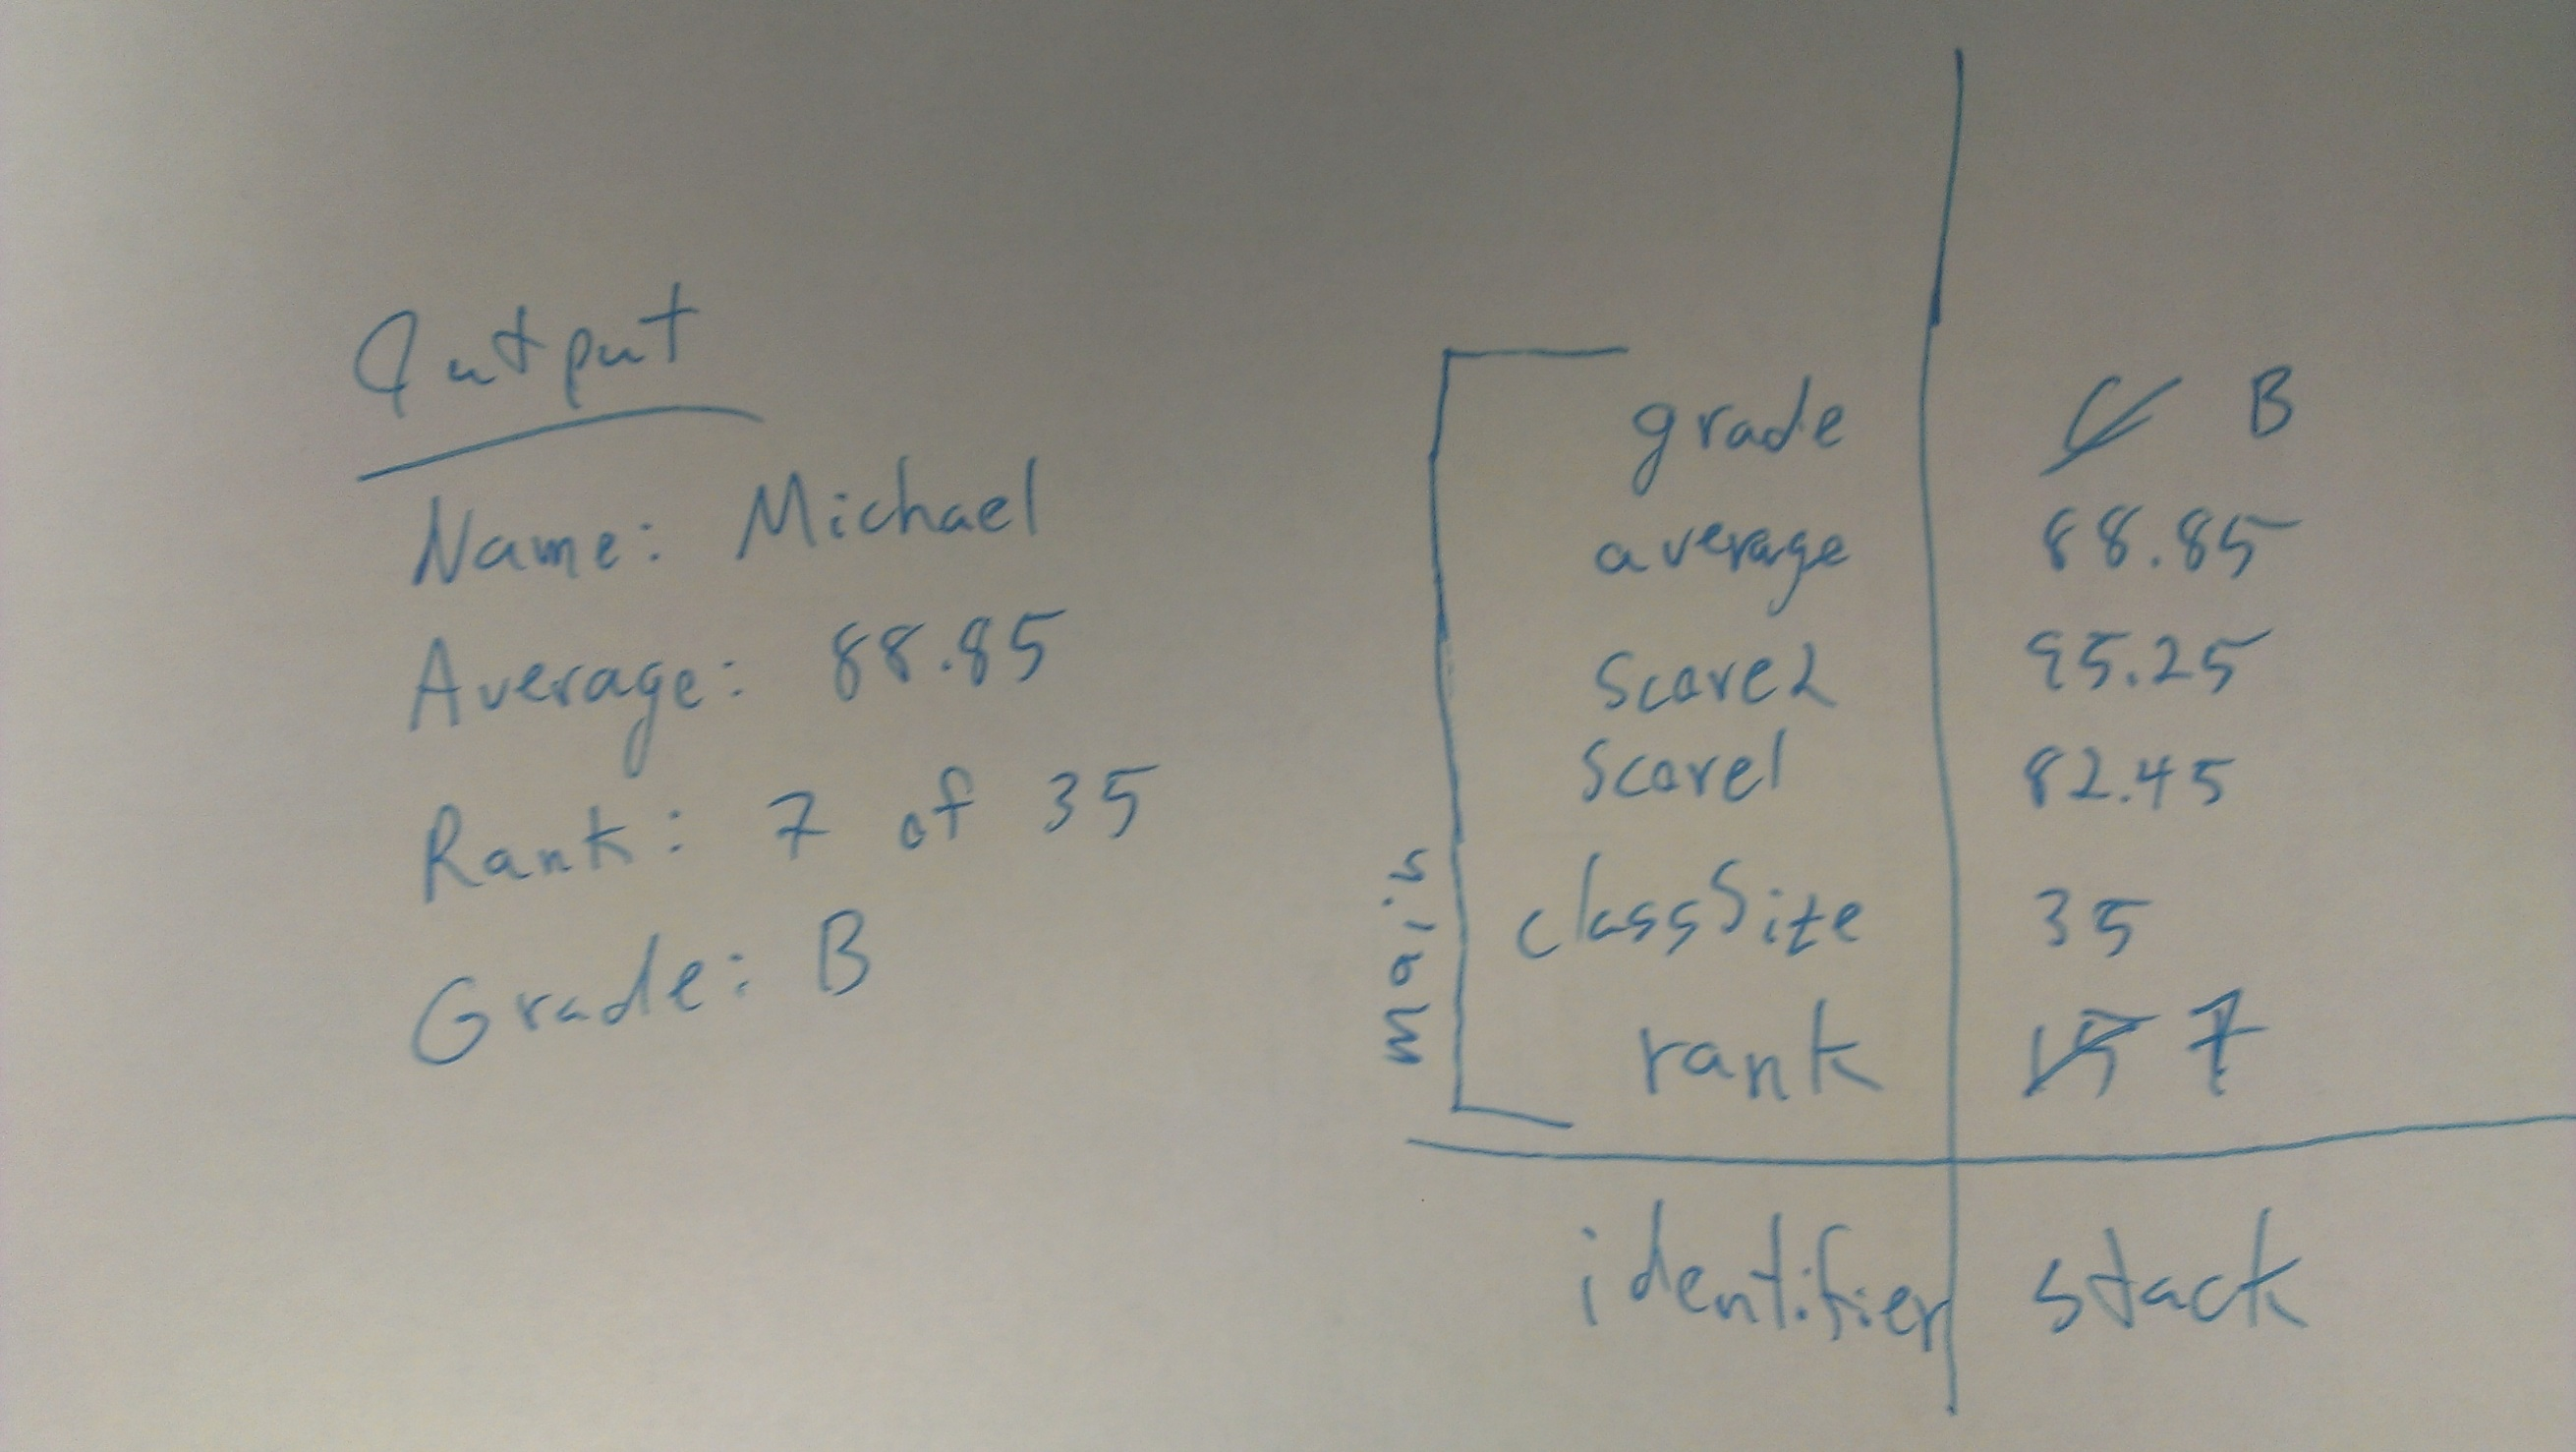 Output
Name: Michael
Average: 88.85
Rank: 7 of 35
Grade: B
main
grade C B
average 88.85
score2 95.25
score1 82.45
classSize 35
rank 15 7
identifier stack